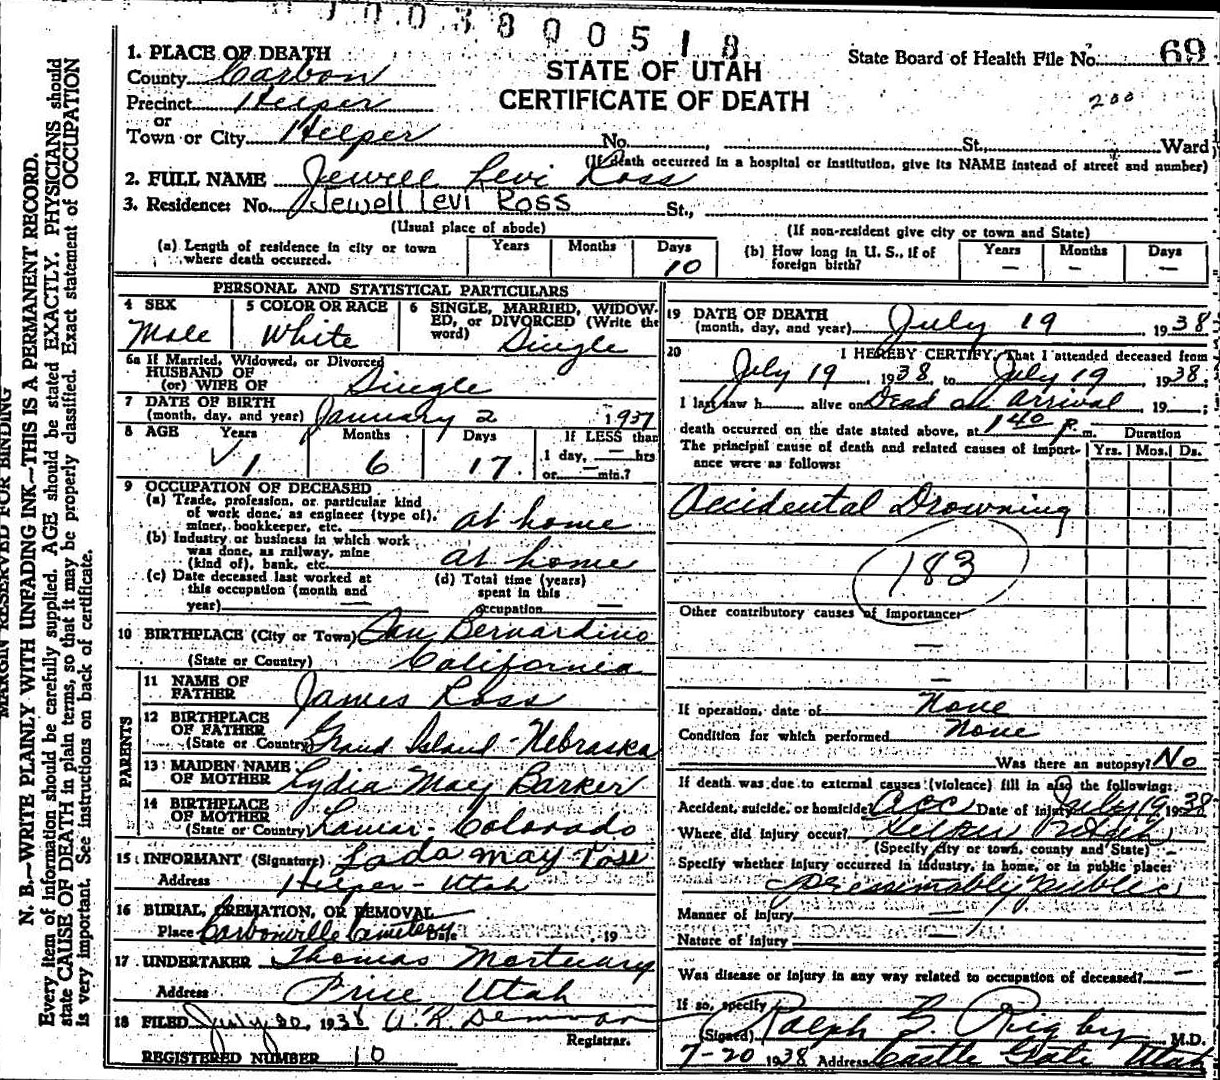 1003800518
State Board of Health File No. 69
200
1. PLACE OF DEATH
County Carbon
STATE OF UTAH
Precinct Helper
CERTIFICATE OF DEATH
or
Town or City Helper No. , St., Ward
(If death occurred in a hospital or institution, give its NAME instead of street and number)
2. FULL NAME Jewell Levi Ross
3. Residence: No. Jewell Levi Ross St.,
(Usual place of abode) (If non-resident give city or town and State)
(a) Length of residence in city or town where death occurred. Years Months Days 10
(b) How long in U. S., if of foreign birth? Years — Months — Days —
PERSONAL AND STATISTICAL PARTICULARS
4 SEX Male
5 COLOR OR RACE White
6 SINGLE, MARRIED, WIDOWED, or DIVORCED (Write the word) Single
6a If Married, Widowed, or Divorced
HUSBAND OF
(or) WIFE OF Single
7 DATE OF BIRTH
(month, day, and year) January 2 1937
8 AGE Years 1 Months 6 Days 17. If LESS than
1 day, — hrs
or — min.?
9 OCCUPATION OF DECEASED
(a) Trade, profession, or particular kind
of work done, as engineer (type of),
miner, bookkeeper, etc. at home
(b) Industry or business in which work
was done, as railway, mine
(kind of), bank, etc. at home
(c) Date deceased last worked at
this occupation (month and
year) —
(d) Total time (years)
spent in this
occupation —
10 BIRTHPLACE (City or Town) San Bernardino
(State or Country) California
PARENTS
11 NAME OF
FATHER James Ross
12 BIRTHPLACE
OF FATHER
(State or Country) Grand Island - Nebraska
13 MAIDEN NAME
OF MOTHER Lydia May Barker
14 BIRTHPLACE
OF MOTHER
(State or Country) Lamar - Colorado
15 INFORMANT (Signature) May Ross
Address Helper - Utah
16 BURIAL, CREMATION, OR REMOVAL
Place Carbonville Cemetery Date , 19
17 UNDERTAKER Thomas Mortuary
Address Price Utah
18 FILED July 20, 1938
Registrar.
REGISTERED NUMBER 10
19 DATE OF DEATH
(month, day, and year) July 19 , 1938
20 I HEREBY CERTIFY, That I attended deceased from
July 19 , 1938, to July 19 , 1938;
I last saw h alive on Dead on arrival , 19 ;
death occurred on the date stated above, at 1 40 P. m. Duration
The principal cause of death and related causes of importance were as follows: Yrs. Mos. Ds.
Accidental Drowning
183
Other contributory causes of importance:
—
—
If operation, date of None
Condition for which performed None
Was there an autopsy? No
If death was due to external causes (violence) fill in also the following:
Accident, suicide, or homicide Acc Date of injury July 19 1938
Where did injury occur? Helper
(Specify city or town, county and State)
Specify whether injury occurred in industry, in home, or in public place:
presumably public
Manner of injury —
Nature of injury —
Was disease or injury in any way related to occupation of deceased? —
If so, specify
(Signed) Ralph G. Rigby M.D.
7-20 1938 Address Castle Gate Utah
MARGIN RESERVED FOR BINDING
N. B.—WRITE PLAINLY WITH UNFADING INK—THIS IS A PERMANENT RECORD.
Every item of information should be carefully supplied. AGE should be stated EXACTLY. PHYSICIANS should
state CAUSE OF DEATH in plain terms, so that it may be properly classified. Exact statement of OCCUPATION
is very important. See instructions on back of certificate.